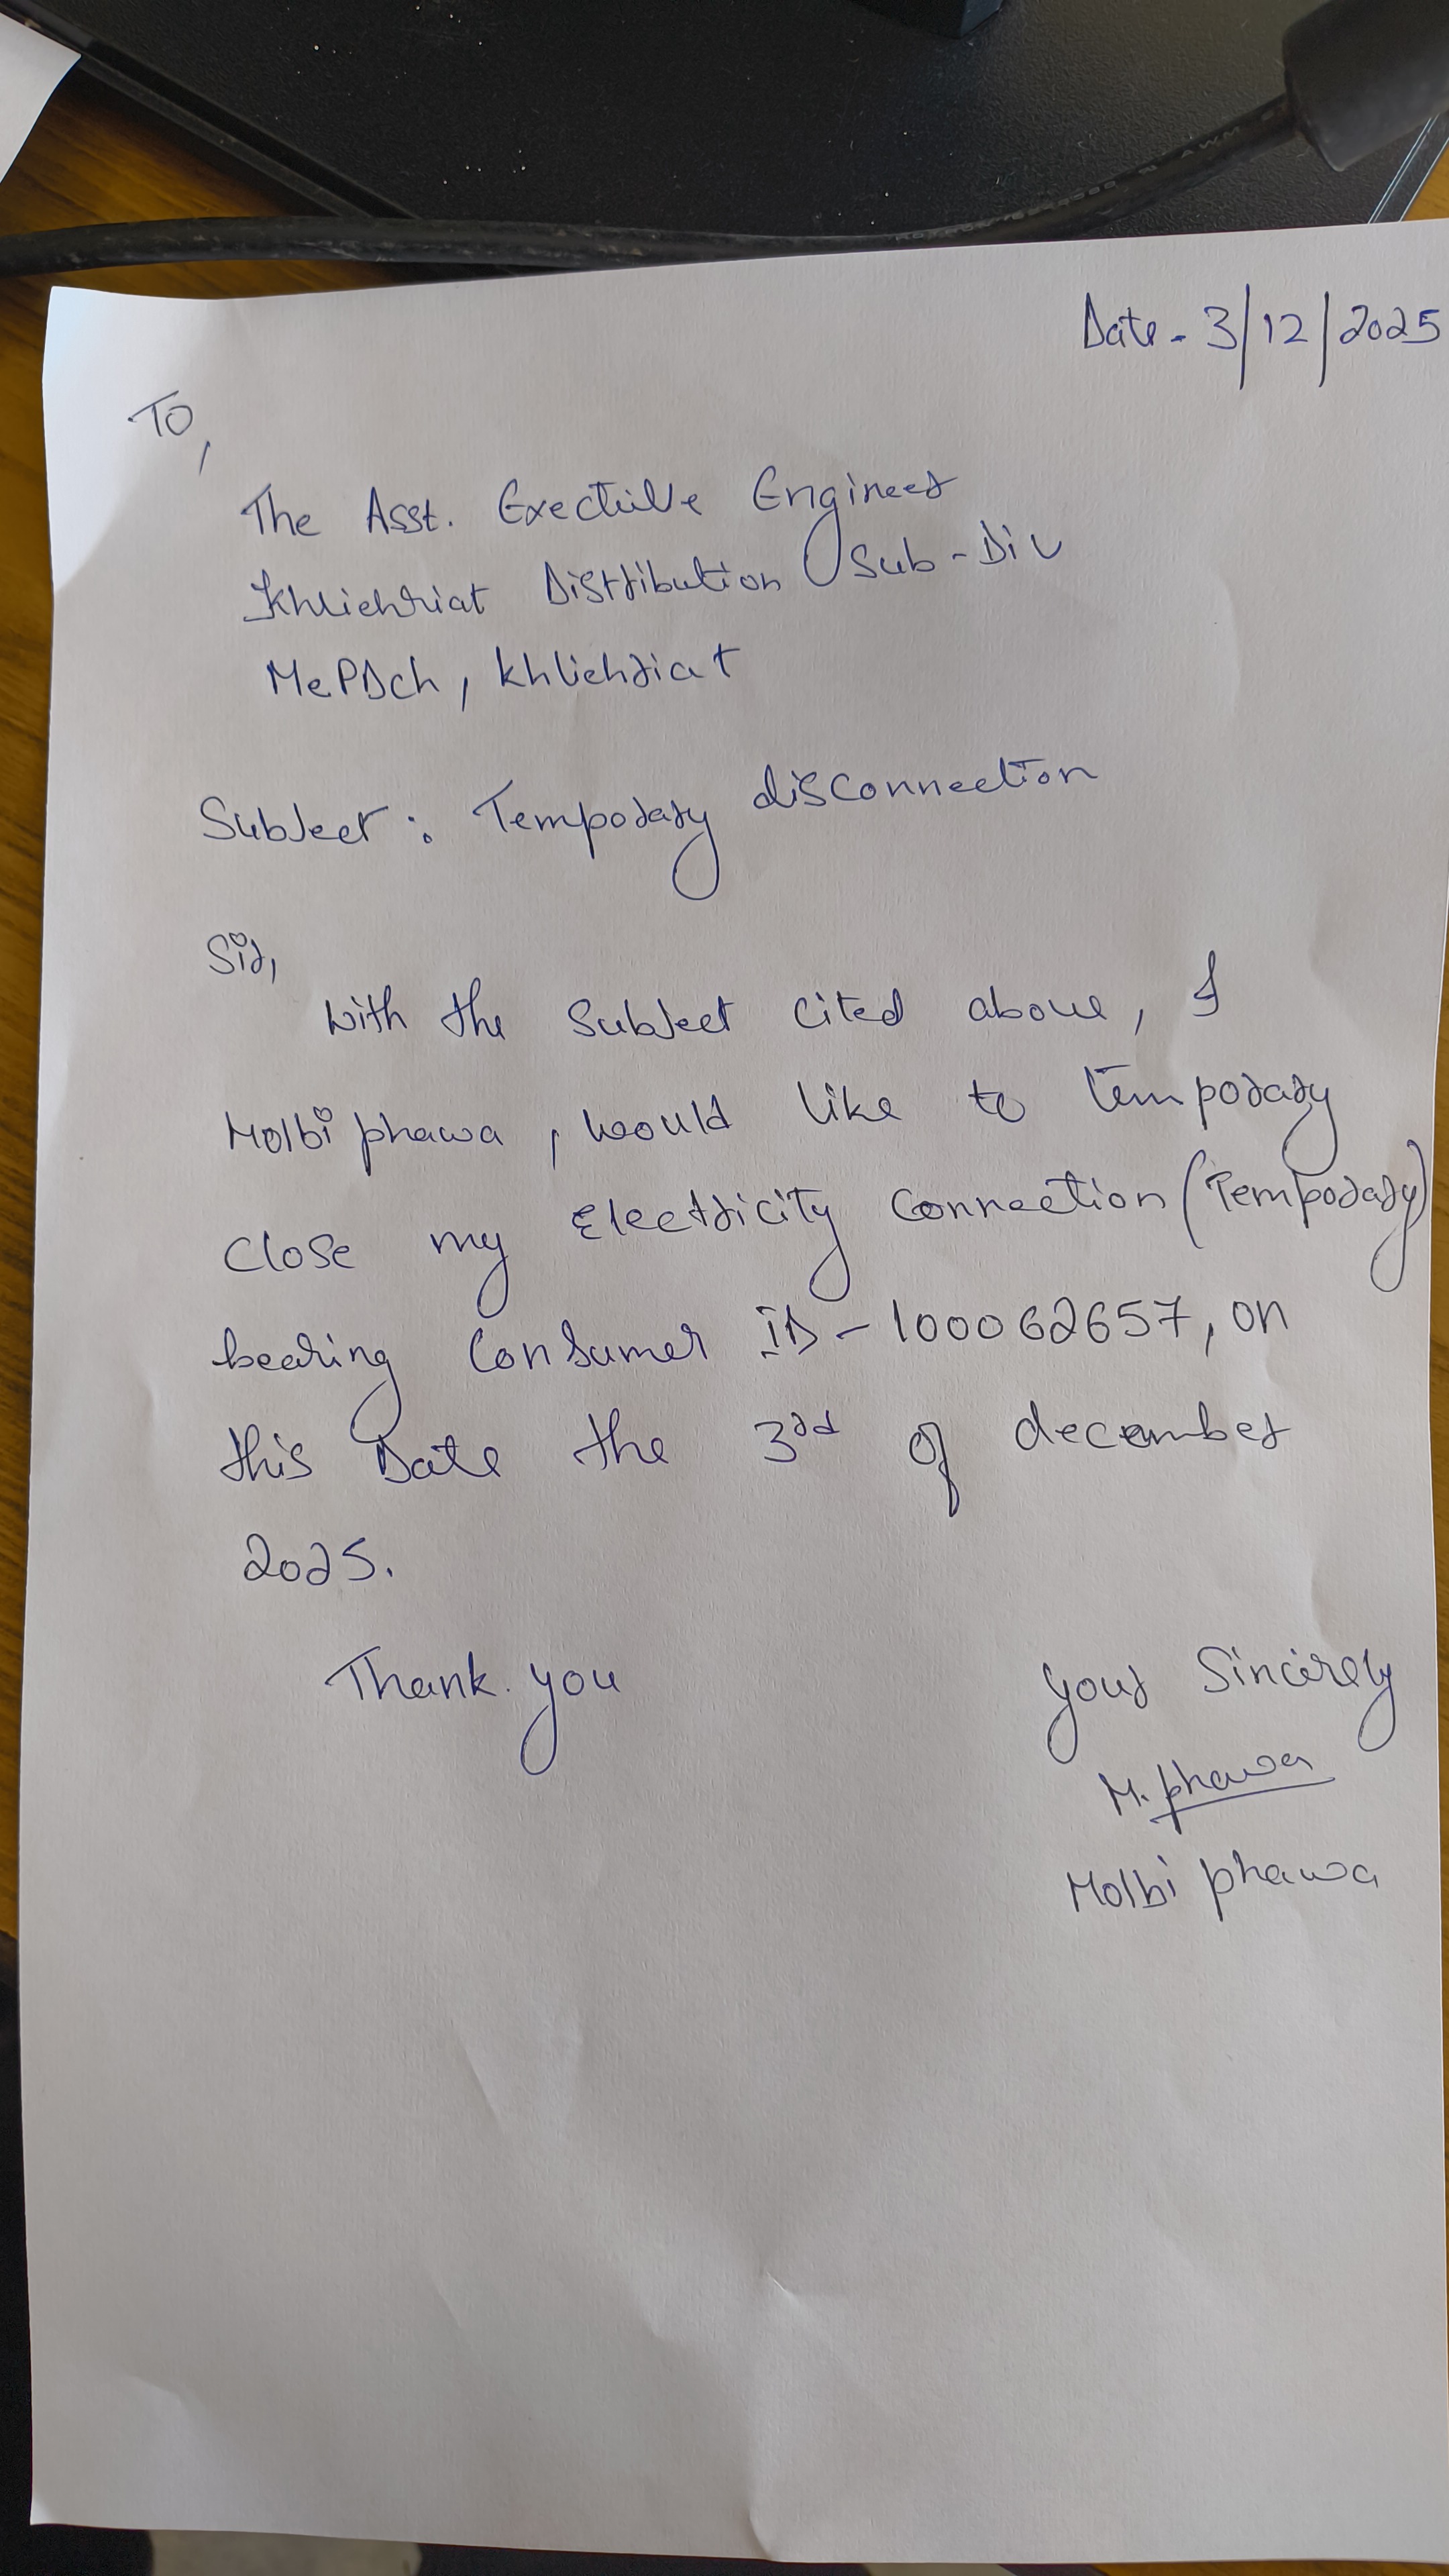 Date - 3/12/2025
To,
The Asst. Exective Engineer
Khliehriat Distribution Sub-Div
MePDCL, Khliehriat
Subject : Temporary disconnection
Sir,
With the Subject cited above, I
Molbi phawa, would like to temporary
close my Electricity Connection (Temporary)
bearing Consumer ID - 100062657, on
this Date the 3rd of december
2025.
Thank you
Your Sincirely
M. phawa
Molbi phawa